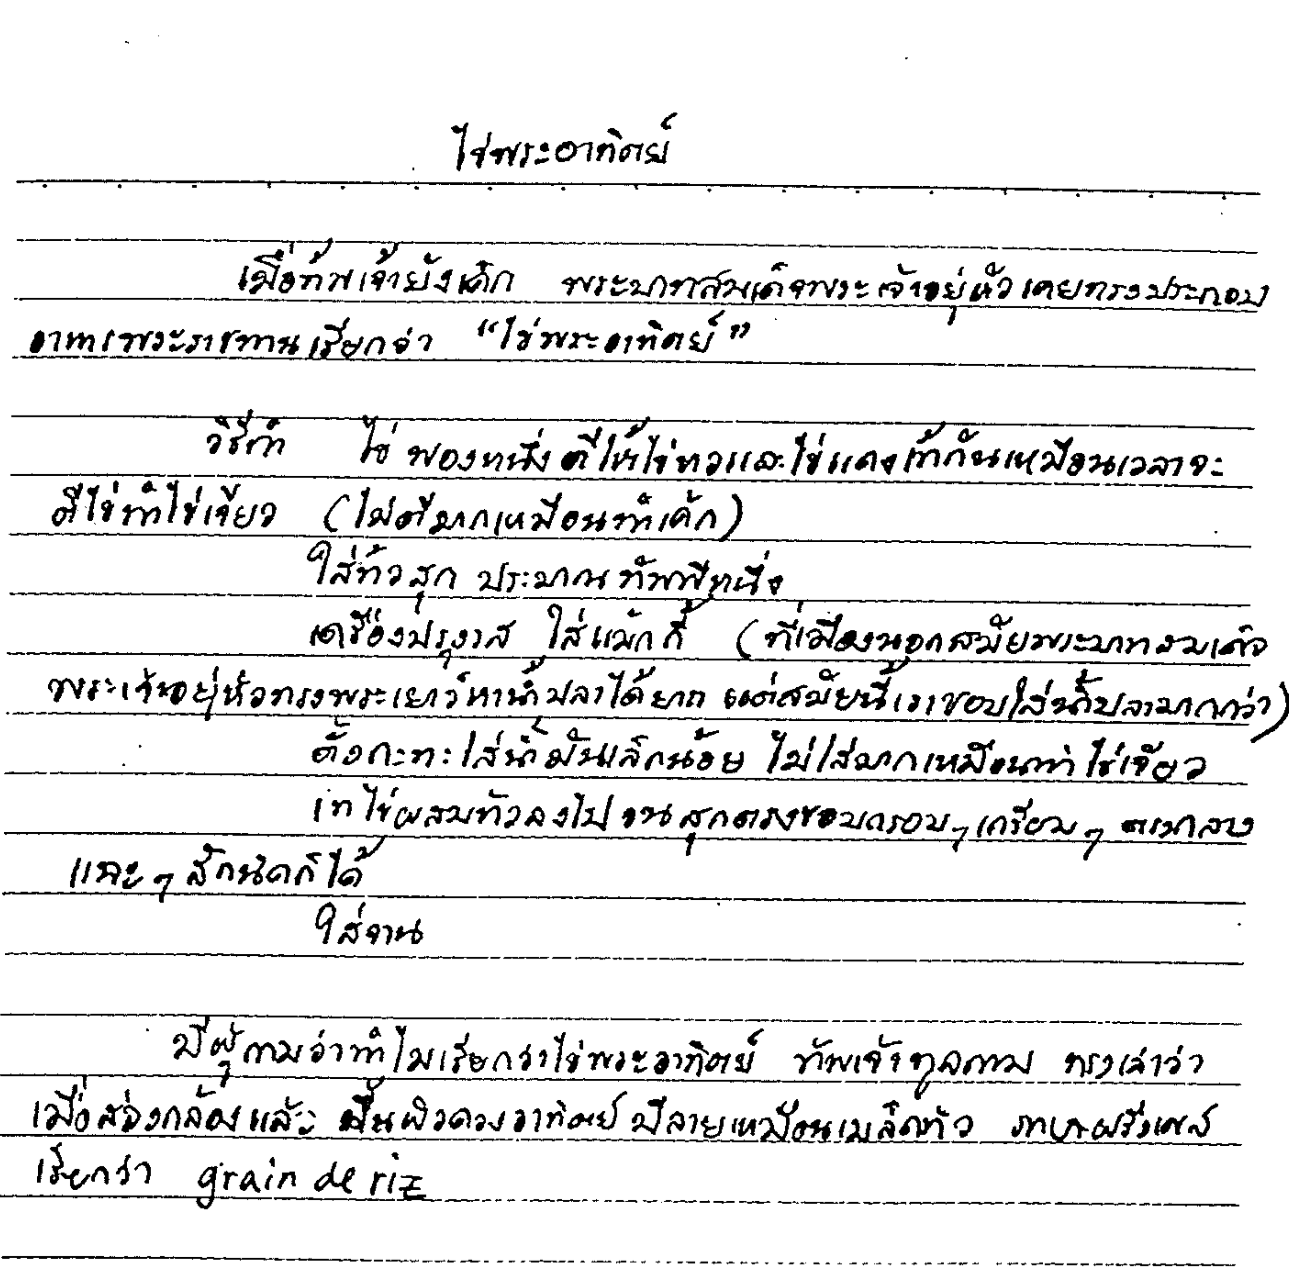 ไข่พระอาทิตย์
เมื่อข้าพเจ้ายังเด็ก พระบาทสมเด็จพระเจ้าอยู่หัวเคยทรงประกอบ
อาหารพระราชทานเรียกว่า “ไข่พระอาทิตย์”
วิธีทำ ไข่ฟองหนึ่ง ตีให้ไข่ขาวและไข่แดงเข้ากันเหมือนเวลาจะ
ตีไข่ทำไข่เจียว (ไม่ตีมากเหมือนทำเค้ก)
ใส่ข้าวสุก ประมาณ ทัพพีหนึ่ง
เครื่องปรุงรส ใส่แม๊กกี้ (ที่เมืองนอกสมัยพระบาทสมเด็จ
พระเจ้าอยู่หัวทรงพระเยาว์หาน้ำปลาได้ยาก แต่สมัยนี้เราชอบใส่น้ำปลามากกว่า)
ตั้งกะทะใส่น้ำมันเล็กน้อย ไม่ใส่มากเหมือนทำไข่เจียว
เทไข่ผสมข้าวลงไป จนสุกตรงขอบกรอบๆ เกรียมๆ ตรงกลาง
แฉะๆ สักนิดก็ได้
ใส่จาน
มีผู้ถามว่าทำไมเรียกว่าไข่พระอาทิตย์ ข้าพเจ้าทูลถาม ทรงเล่าว่า
เมื่อส่องกล้องแล้ว พื้นผิวดวงอาทิตย์ มีลายเหมือนเมล็ดข้าว ภาษาฝรั่งเศส
เรียกว่า grain de riz